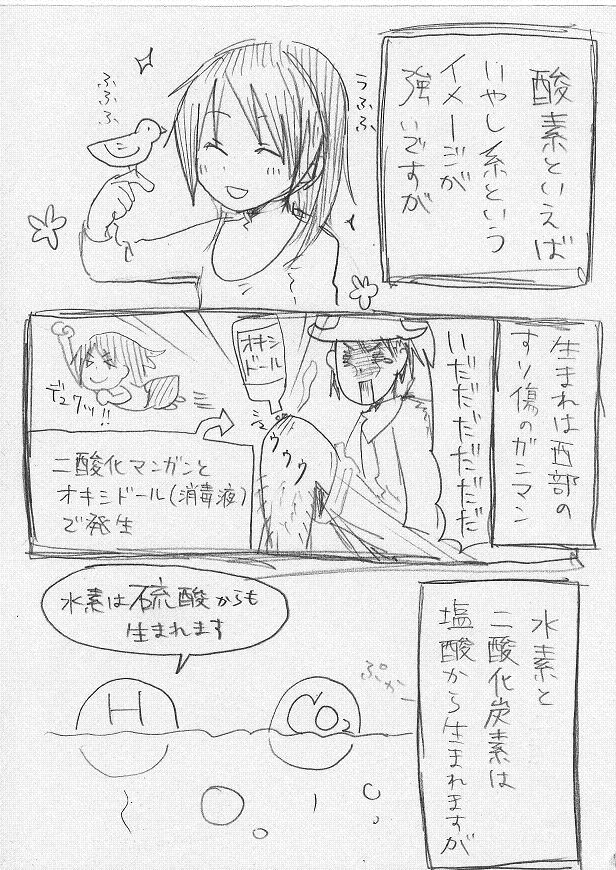 酸素といえば
いやし系という
イメージが
強いですが
うふふ
ふふふ
生まれは西部の
すり傷のガンマン
いだだだだだだだ
オキシ
ドール
ジュウウウ
デュワッ!!
二酸化マンガンと
オキシドール(消毒液)
で発生
水素と
二酸化炭素は
塩酸から生まれますが
ぷかー
CO2
H
水素は硫酸からも
生まれます